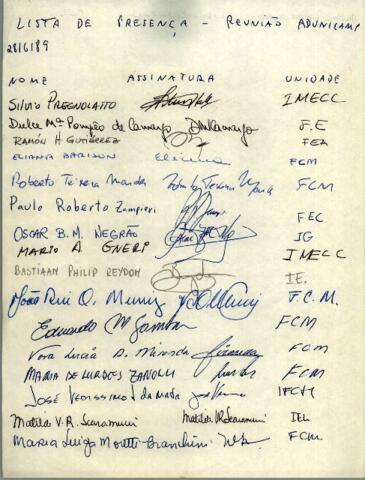 LISTA DE PRESENÇA - REUNIÃO ADUNICAMP
28/6/89
NOME ASSINATURA UNIDADE
SILVIO PREGNOLATTO IMECC
Dulce Mª Pompêo de Camargo DMCamargo F.E
RAMÓN H GUTIÉRREZ FEA
ELIANA BARISON Eliana FCM
Roberto Teixeira Mendes Roberto Teixeira FCM
Paulo Roberto Zampieri FEC
OSCAR B.M. NEGRÃO IG
MARIO A. GNERI IMECC
BASTIAAN PHILIP REYDON IE.
João Rui O. Muniz F.C.M.
Eduardo M FCM
Vera Lucia A. Miranda Miranda FCM
MARIA DE LURDES ZANOLLI FCM
JOSÉ VERISSIMO IFCH
Matilde V.R. Scaramucci Matilde VRScaramucci IEL
Maria Luiza Moretti Branchini FCM